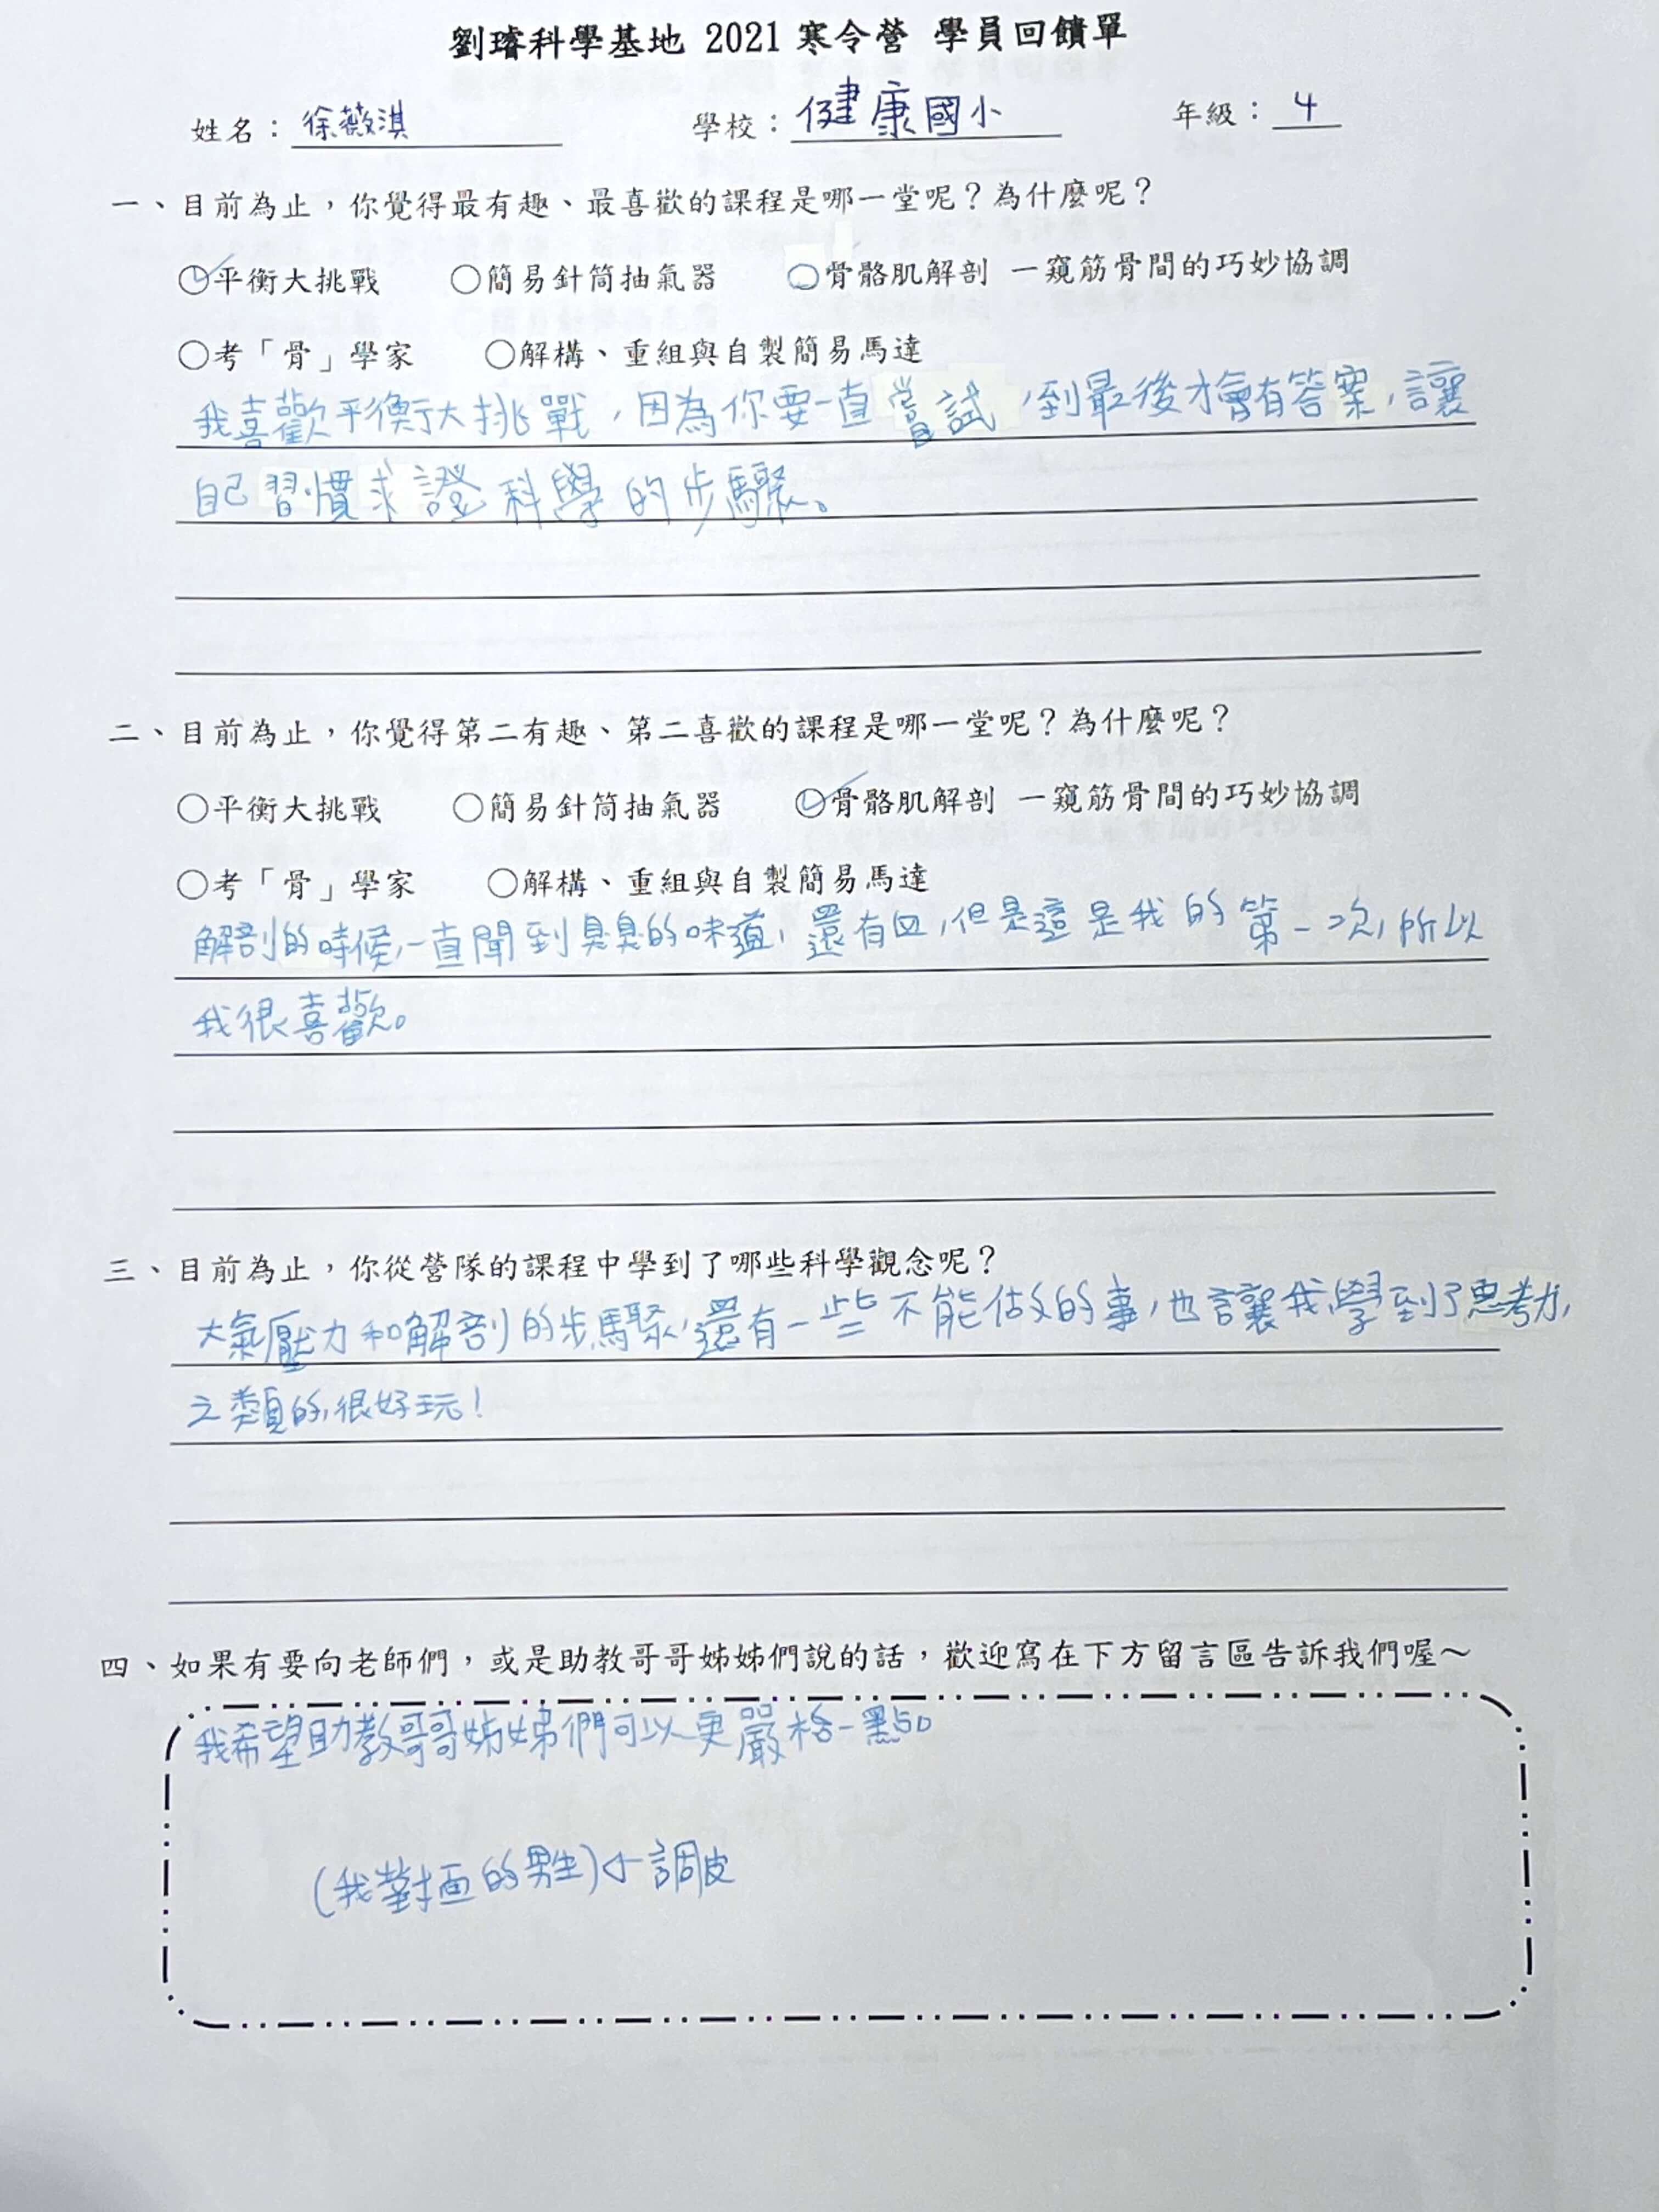 劉璿科學基地 2021 寒令營 學員回饋單
姓名：徐薇淇 學校：健康國小 年級：4
一、目前為止，你覺得最有趣、最喜歡的課程是哪一堂呢？為什麼呢？
○平衡大挑戰 ○簡易針筒抽氣器 ○骨骼肌解剖 一窺筋骨間的巧妙協調
○考「骨」學家 ○解構、重組與自製簡易馬達
我喜歡平衡大挑戰，因為你要一直嘗試，到最後才會有答案，讓
自己習慣求證科學的步驟。
二、目前為止，你覺得第二有趣、第二喜歡的課程是哪一堂呢？為什麼呢？
○平衡大挑戰 ○簡易針筒抽氣器 ○骨骼肌解剖 一窺筋骨間的巧妙協調
○考「骨」學家 ○解構、重組與自製簡易馬達
解剖的時候，一直聞到臭臭的味道，還有血，但是這是我的第一次，所以
我很喜歡。
三、目前為止，你從營隊的課程中學到了哪些科學觀念呢？
大氣壓力和解剖的步驟，還有一些不能做的事，也讓我學到了思考力，
之類的，很好玩！
四、如果有要向老師們，或是助教哥哥姊姊們說的話，歡迎寫在下方留言區告訴我們喔～
我希望助教哥哥姊姊們可以更嚴格一點。
(我對面的男生)←調皮